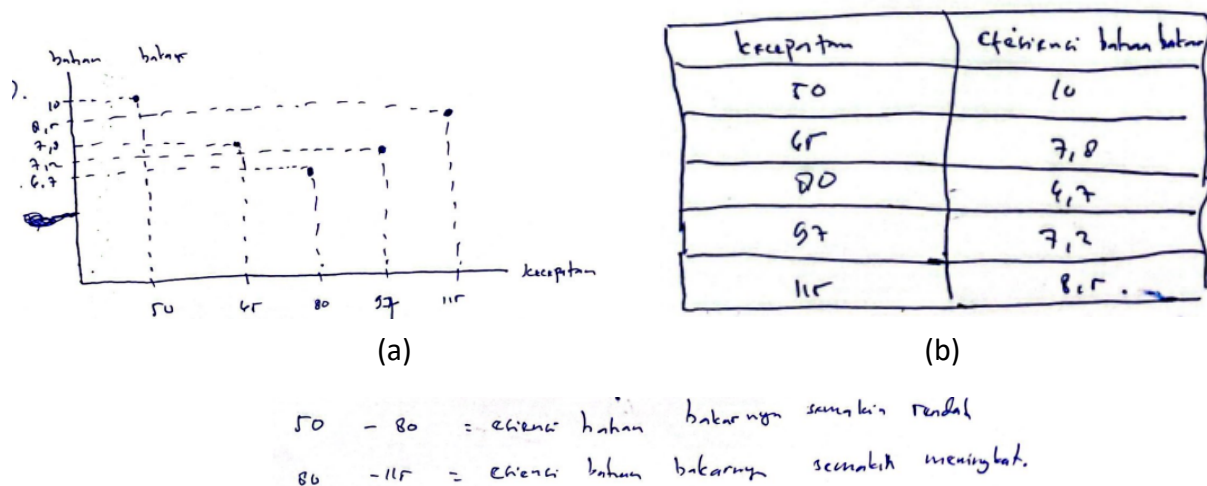 bahan bakar
).
10
8,5
7,8
7,2
6,7
kecepatan
50 65 80 97 115
(a)
kecepatan efesiensi bahan bakar
50 10
65 7,8
80 6,7
97 7,2
115 8,5.
(b)
50 - 80 = esiensi bahan bakarnya semakin rendah
80 - 115 = esiensi bahan bakarnya semakin meningkat.